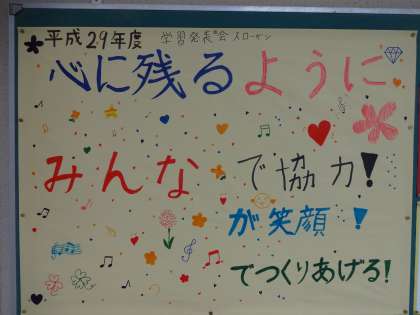 平成29年度 学習発表会スローガン
心に残るように
みんなで協力!
が笑顔!
でつくりあげる!